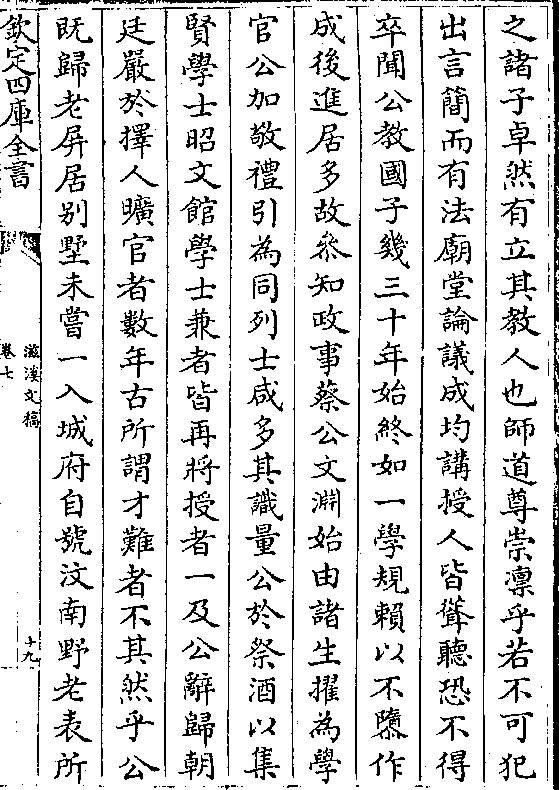 之諸子卓然有立其教人也師道尊崇凛乎若不可犯
出言簡而有法廟堂論議成均講授人皆聳聽恐不得
卒聞公教國子幾三十年始終如一學規賴以不隳作
成後進居多故叅知政事蔡公文淵始由諸生擢為學
官公加敬禮引為同列士咸多其識量公於祭酒以集
賢學士昭文館學士兼者皆再將授者一及公辭歸朝
廷嚴於擇人曠官者數年古所謂才難者不其然乎公
既歸老屏居别墅未嘗一入城府自號汶南野老表所
欽定四庫全書
滋溪文稿
卷七
十九